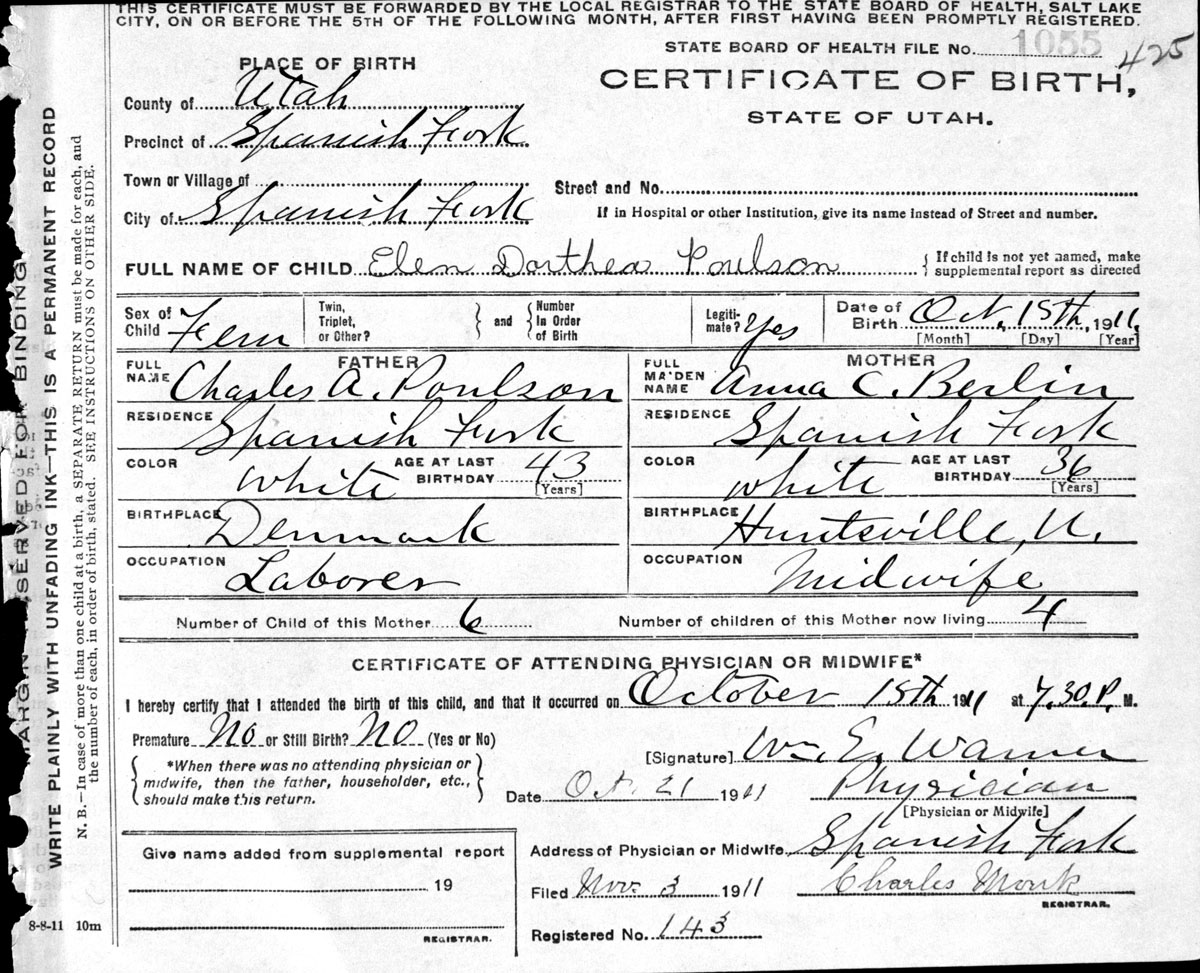 THIS CERTIFICATE MUST BE FORWARDED BY THE LOCAL REGISTRAR TO THE STATE BOARD OF HEALTH, SALT LAKE
CITY, ON OR BEFORE THE 5TH OF THE FOLLOWING MONTH, AFTER FIRST HAVING BEEN PROMPTLY REGISTERED.
STATE BOARD OF HEALTH FILE No. 1055 425
PLACE OF BIRTH
CERTIFICATE OF BIRTH,
STATE OF UTAH.
County of Utah
Precinct of Spanish Fork
Town or Village of
Street and No.
City of Spanish Fork
If in Hospital or other Institution, give its name instead of Street and number.
FULL NAME OF CHILD Elen Dorthea Poulson { If child is not yet named, make supplemental report as directed
Sex of Child Fem
Twin, Triplet, or Other? } and { Number In Order of Birth
Legitimate? Yes
Date of Birth Oct. 15th, 1911
[Month] [Day] [Year]
FATHER
FULL NAME Charles A. Poulson
RESIDENCE Spanish Fork
COLOR White AGE AT LAST BIRTHDAY 43 [Years]
BIRTHPLACE Denmark
OCCUPATION Laborer
MOTHER
FULL MAIDEN NAME Anna C. Berlin
RESIDENCE Spanish Fork
COLOR White AGE AT LAST BIRTHDAY 36 [Years]
BIRTHPLACE Huntsville, U.
OCCUPATION Midwife
Number of Child of this Mother 6 Number of children of this Mother now living 4
CERTIFICATE OF ATTENDING PHYSICIAN OR MIDWIFE*
I hereby certify that I attended the birth of this child, and that it occurred on October 15th 1911 at 7.30.P. M.
Premature No or Still Birth? NO (Yes or No)
*When there was no attending physician or
midwife, then the father, householder, etc.,
should make this return.
[Signature] Wm. E. Warner
Date Oct. 21 1911 Physician
[Physician or Midwife]
Address of Physician or Midwife Spanish Fork
Filed Nov. 3 1911 Charles Monk
REGISTRAR.
Registered No. 143
Give name added from supplemental report
19
REGISTRAR.
8-8-11 10m
MARGIN RESERVED FOR BINDING
WRITE PLAINLY WITH UNFADING INK—THIS IS A PERMANENT RECORD
N. B.—In case of more than one child at a birth, a SEPARATE RETURN must be made for each, and
the number of each, in order of birth, stated. SEE INSTRUCTIONS ON OTHER SIDE.